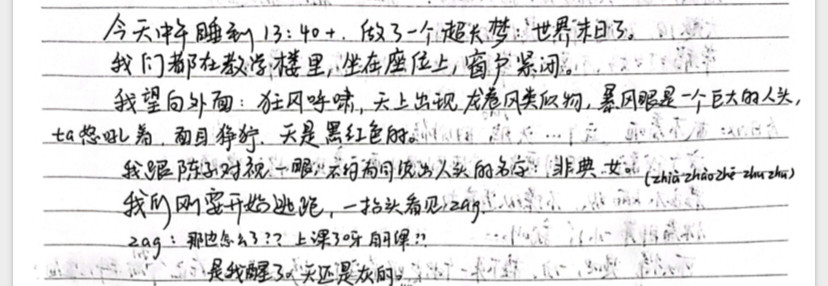 今天中午睡到13:40+,做了一个超长梦:世界末日了。
我们都在教学楼里,坐在座位上,窗户紧闭。
我望向外面:狂风呼啸,天上出现龙卷风类似物,暴风眼是一个巨大的人头,
ta怒吼着,面目狰狞,天是黑红色的。
我跟陈子对视一眼,不约而同说出人头的名字:非典女。(zhià zhào zhě zhu zhu)
我们刚要开始逃跑,一抬头看见zag.
zag:那边怎么了??上课了呀用课??
是我醒了。天还是灰的。